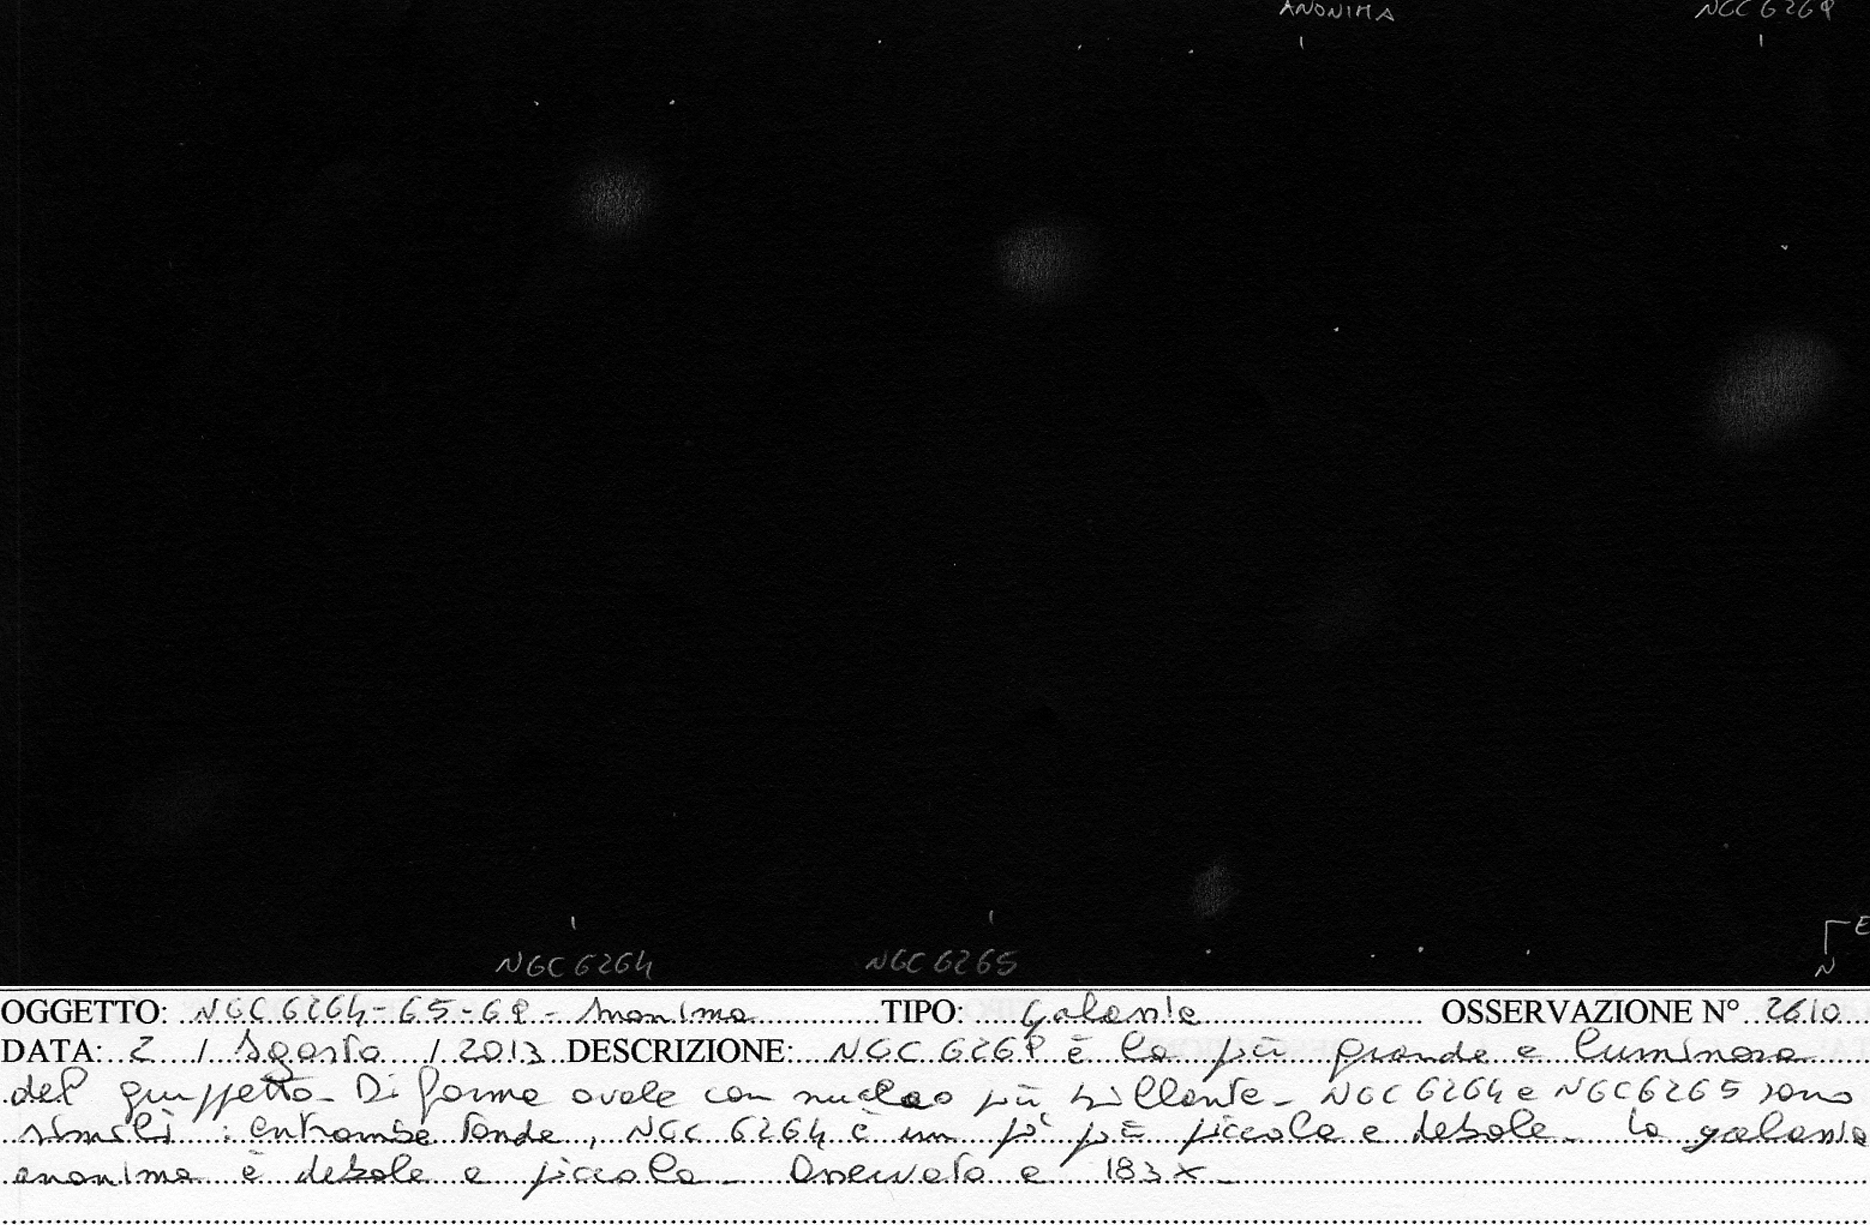 ANONIMA NGC 6269
NGC 6264 NGC 6265
E
N
OGGETTO: NGC 6264-65-69 - Anonima TIPO: galassie OSSERVAZIONE N° 2610
DATA: 2 / Agosto / 2013 DESCRIZIONE: NGC 6269 è la più grande e luminosa
del gruppetto. Di forma ovale con nucleo più brillante. NGC 6264 e NGC 6265 sono
simili: entrambe tonde, NGC 6264 è un pò più piccola e debole. La galassia
anonima è debole e piccola. Osservato a 183x.